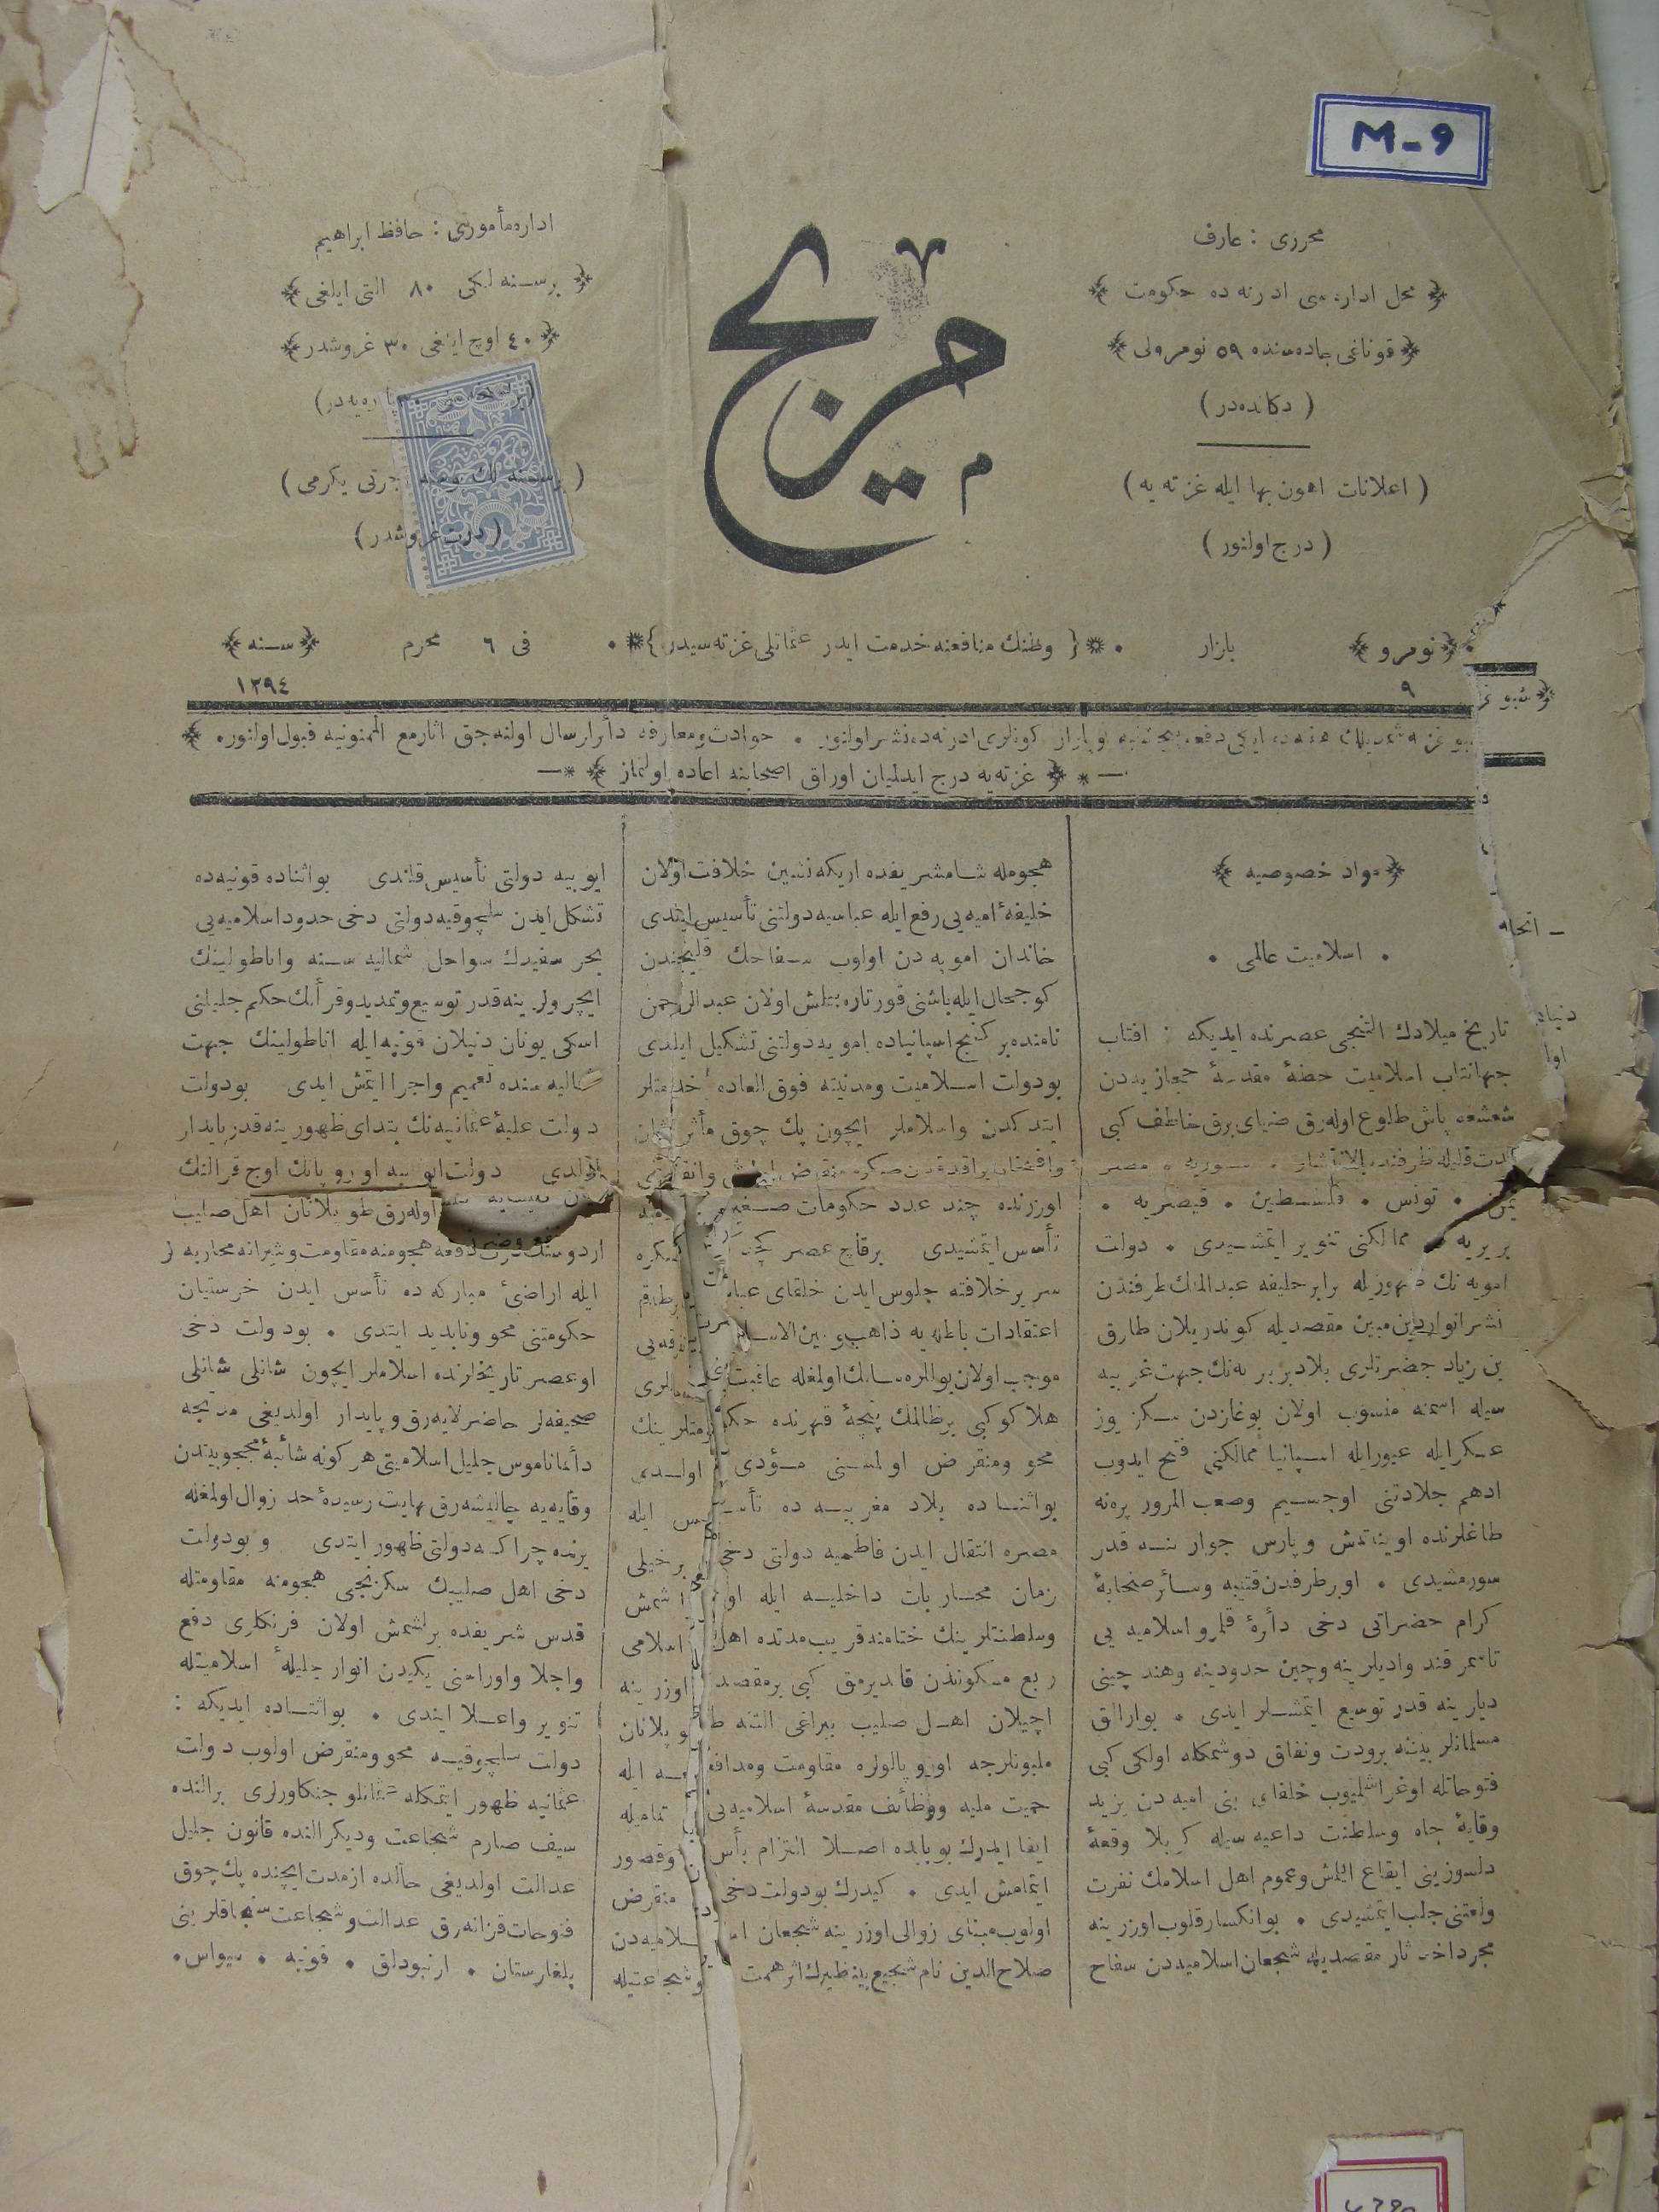 M-9
محرری : عارف
محل اداره سی ادرنه ده حکومت
قوناغی جاده سنده ٥٩ نومرولی
( دکانده در )
( اعلانات اهون بها ایله غزته یه )
( درج اولنور )
مریخ
اداره مأموری : حافظ ابراهیم
برسنه لکی ٨٠ التی ایلغی
٤٠ اوچ ایلغی ٣٠ غروشدر
( برسنه لك پوسته اجرتی یکرمی )
( درت غروشدر )
نومرو
٩
بازار
{ وطنك منافعنه خدمت ایدر عثمانلی غزته سیدر }
فی ٦ محرم
سنه
١٢٩٤
غزته شمدیلك هفته ده ایکی دفعه پنجشنبه و بازار کونلری ادرنه ده نشر اولنور . حوادث ومعارفه دأر ارسال اولنه جق اثار مع الممنونیه قبول اولنور .
غزته یه درج ایدلیان اوراق اصحابنه اعاده اولنماز
مواد خصوصیه
. اسلامیت عالمی .
تاریخ میلادك التنجی عصرنده ایدیکه : افتاب
جهانتاب اسلامیت خطهٔ مقدسهٔ حجازیه دن
شعشعه پاش طلوع اوله رق ضیای برق خاطف کبی
مدت قلیله ظرفنده . سوریه . مصر
یمن . تونس . فلسطین . قیصریه .
بربریه ممالکنی تنویر ایتمشیدی . دولت
امویه نك ظهوریله برابر خلیفه عبدالملك طرفندن
نشر انوار دین مبین مقصدیله کوندریلان طارق
بن زیاد حضرتلری بلاد بربریه نك جهت غربیه
سیله اسمنه منسوب اولان بوغازدن سکز یوز
عسکر ایله عبور ایله اسپانیا ممالکنی فتح ایدوب
ادهم جلادتنی اوجسیم وصعب المرور پره نه
طاغلرنده اویناتمش وپارس جوارینه قدر
سورمشیدی . اوبرطرفدن قتیبه وسائر صحابهٔ
کرام حضراتی دخی دأرهٔ قلمرو اسلامیه یی
تا سمرقند وادیلرینه وچین حدودینه وهند چینی
دیارینه قدر توسیع ایتمشلر ایدی . بوارالق
مسلمانلر بیننه برودت ونفاق دوشمکله اولکی کبی
فتوحاتله اوغراشلمیوب خلفای بنی امیه دن یزید
وقایهٔ جاه وسلطنت داعیه سیله کربلا وقعهٔ
دلسوزینی ایقاع ایلمش وعموم اهل اسلامك نفرت
ولعنتنی جلب ایتمشیدی . بوانکسار قلوب اوزرینه
مجرد اخذ ثار مقصدیله شجعان اسلامیه دن سفاح
هجومله شام شریفده اریکه نشین خلافت اولان
خلیفهٔ امیه یی رفع ایله عباسیه دولتنی تأسیس ایتدی
خاندان امویه دن اولوب سفاحك قلیجندن
کوجحال ایله باشنی قورتاره بیلمش اولان عبدالرحمن
نامنده برکنج اسپانیاده امویه دولتنی تشکیل ایلدی
بودولت اسلامیت ومدنیته فوق العاده خدمتلر
ایتدکدن واسلاملر ایچون پك چوق مأثر
اوزرنده چند عدد حکومات صغیره
تأسس ایتمشیدی برقاچ عصر
سریر خلافته جلوس ایدن خلفای برطاقم
اعتقادات باطله یه ذاهب وبین الاسلام تفرقه یی
موجب اولان یوللره سالك اولمغله عاقبت
هلاکو کبی برظالمك پنجهٔ قهرنده حکومتلرینك
محو ومنقرض اولمسنی مؤدی اولدی
بواثناده بلاد مغربیه ده تأسس ایله
مصره انتقال ایدن فاطمیه دولتی دخی برخیلی
زمان محاربات داخلیه ایله اوغراشمش
وسلطنتلرینك ختامنه قریب مدتده اهل اسلامی
ربع مسکوندن قالدیرمق کبی برمقصد اوزرینه
اچیلان اهل صلیب بیراغی التنه طوپلانان
ملیونلرجه اوروپالولره مقاومت ومدافعه ایله
حمیت ملیه ووظائف مقدسهٔ اسلامیه یی تمامیله
ایفا ایدرك بوبابده اصلا التزام یأس وقصور
ایتمامش ایدی . کیدرك بودولت دخی منقرض
اولوب مبنای زوالی اوزرینه شجعان اسلامیه دن
صلاح الدین نام شجیع بی نظیرك اثر همت وشجاعتیله
ایوبیه دولتی تأسیس قلندی بواثناده قونیه ده
تشکل ایدن سلجوقیه دولتی دخی حدود اسلامیه یی
بحر سفیدك سواحل شمالیه سنه واناطولینك
ایچرولرینه قدر توسیع وتمدید وقرأنك حکم جلیلنی
اسکی یونان دنیلان قونیه ایله اناطولینك جهت
شمالیه سنده تعمیم واجرا ایتمش ایدی بودولت
دولت علیهٔ عثمانیه نك ابتدای ظهورینه قدر پایدار
اولدی دولت ایوبیه اوروپانك اوچ قرالنك
اوله رق طوپلانان اهل صلیب
اردوسنك درت دفعه هجومنه مقاومت وشیرانه محاربه لر
ایله اراضیٔ مبارکه ده تأسس ایدن خرستیان
حکومتنی محو ونابدید ایتدی . بودولت دخی
اوعصر تاریخلرنده اسلاملر ایچون شانلی شانلی
صحیفه لر حاضرلایه رق وپایدار اولدیغی مدتجه
دأئما ناموس جلیل اسلامیتی هرکونه شائبهٔ محجوبیتدن
وقایه یه چالیشه رق نهایت رسیدهٔ حد زوال اولمغله
یرنده چراکسه دولتی ظهور ایتدی وبودولت
دخی اهل صلیبك سکزنجی هجومنه مقاومتله
قدس شریفده یرلشمش اولان فرنکلری دفع
واجلا واوراسنی یکیدن انوار جلیلهٔ اسلامیتله
تنویر واعلا ایتدی . بواثناده ایدیکه :
دولت سلجوقیه محو ومنقرض اولوب دولت
عثمانیه ظهور ایتمکله عثمانلو جنکاورلری برالنده
سیف صارم شجاعت ودیکر النده قانون جلیل
عدالت اولدیغی حالده ازمدت ایچنده پك چوق
فتوحات قزانه رق عدالت وشجاعت سنجاقلرینی
بلغارستان . ارنبودلق . قونیه . سیواس .